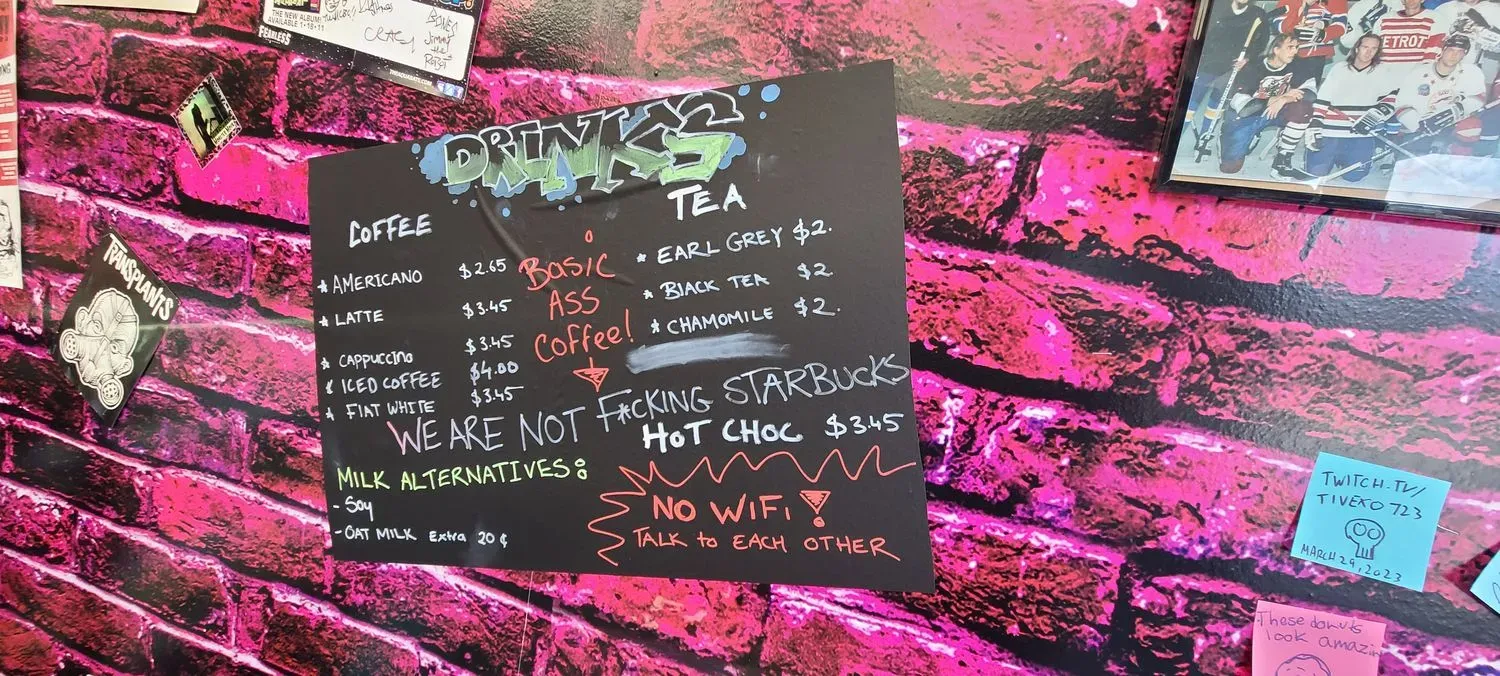 THE NEW ALBUM!
AVAILABLE 1·18·11
FEARLESS
CRAIG
JIMMY
THE
ROBOT
THEAQUABATS.COM
TRANSPLANTS
DETROIT
DRINKS
COFFEE
* AMERICANO $2.65
* LATTE $3.45
* CAPPUCCINO $3.45
* ICED COFFEE $4.00
* FLAT WHITE $3.45
Basic
ASS
Coffee!
TEA
* EARL GREY $2.
* BLACK TEA $2
* CHAMOMILE $2.
WE ARE NOT F*CKING STARBUCKS
HOT CHOC $3.45
MILK ALTERNATIVES:
- Soy
- OAT MILK Extra 20¢
NO WIFI!
TALK to EACH OTHER
TWITCH.TV/
TIVEKO723
MARCH 29, 2023
These donuts
look amazin